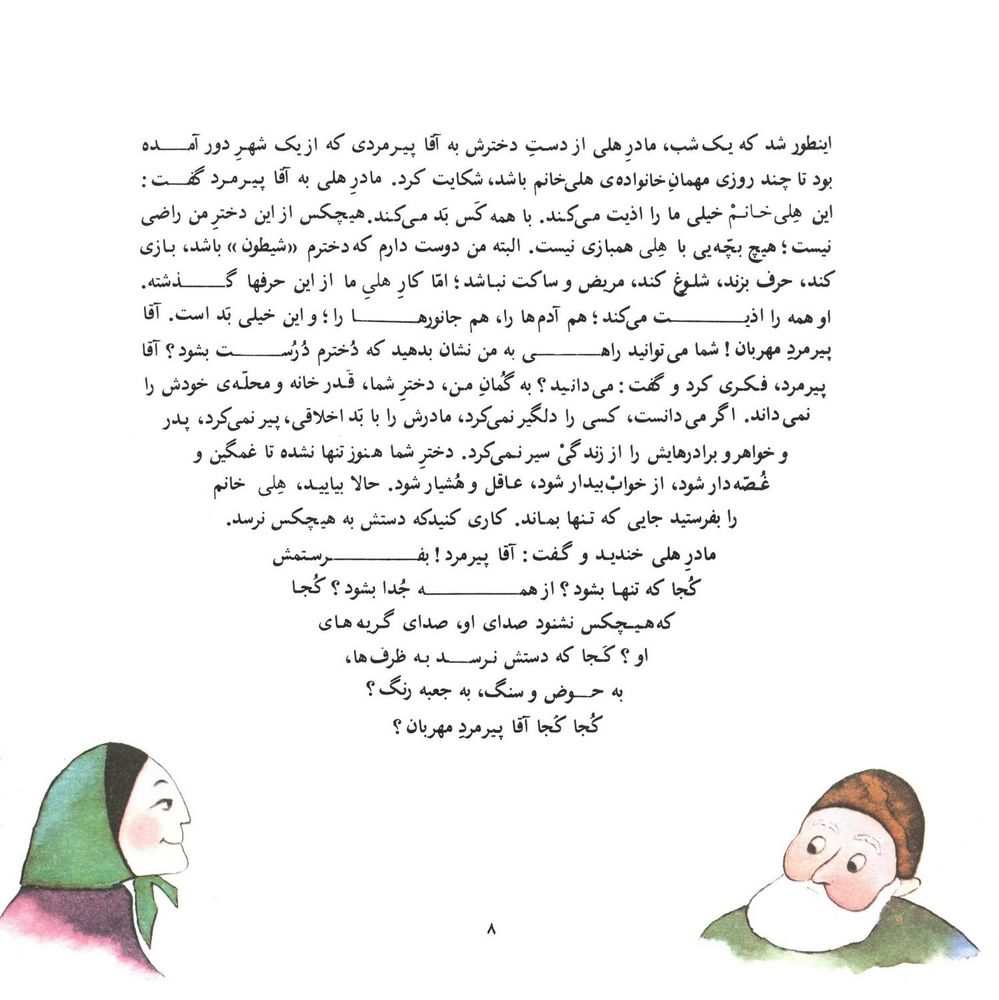 اینطور شد که یک شب، مادرِ هلی از دستِ دخترش به آقا پیرمردی که از یک شهرِ دور آمـــده
بود تا چند روزی مهمانِ خانواده‌ی هلی‌خانم باشد، شکایت کرد. مادرِ هلی به آقا پیرمرد گفت:
این هِلی‌خانمْ خیلی ما را اذیت می‌کند. با همه کَس بَد می‌کند. هیچکس از این دخترِ من راضی
نیست؛ هیچ بچّه‌یی با هِلی همبازی نیست. البته من دوست دارم که دخترم «شیطون» باشد، بازی
کند، حرف بزند، شلوغ کند، مریض و ساکت نباشد؛ امّا کارِ هلیِ ما از این حرفها گـــذشته.
او همه را اذیـــت می‌کند؛ هم آدم‌ها را، هم جانورهـــا را؛ و این خیلی بَد است. آقا
پیرمردِ مهربان! شما می‌توانید راهـــی به من نشان بدهید که دُخترم دُرُســـت بشود؟ آقا
پیرمرد، فکری کرد و گفت: می‌دانید؟ به گُمانِ من، دخترِ شما، قَدرِ خانه و محلّه‌ی خودش را
نمی‌داند. اگر می‌دانست، کسی را دلگیر نمی‌کرد، مادرش را با بَد اخلاقی، پیر نمی‌کرد، پدر
و خواهر و برادرهایش را از زندگیْ سیر نمی‌کرد. دخترِ شما هنوز تنها نشده تا غمگین و
غُصّه‌دار شود، از خوابْ بیدار شود، عاقل و هُشیار شود. حالا بیایید، هِلی خانم
را بفرستید جایی که تنها بماند. کاری کنیدکه دستش به هیچکس نرسد.
مادرِ هلی خندید و گفت: آقا پیرمرد! بفـــرستمش
کُجا که تنها بشود؟ از همـــه جُدا بشود؟ کُجا
که هیچکس نشنود صدای او، صدای گریه های
او؟ کُجا که دستش نرســد به ظرف‌ها،
به حـوض و سنگ، به جعبه رنگ؟
کُجا کُجا آقا پیرمردِ مهربان؟
۸